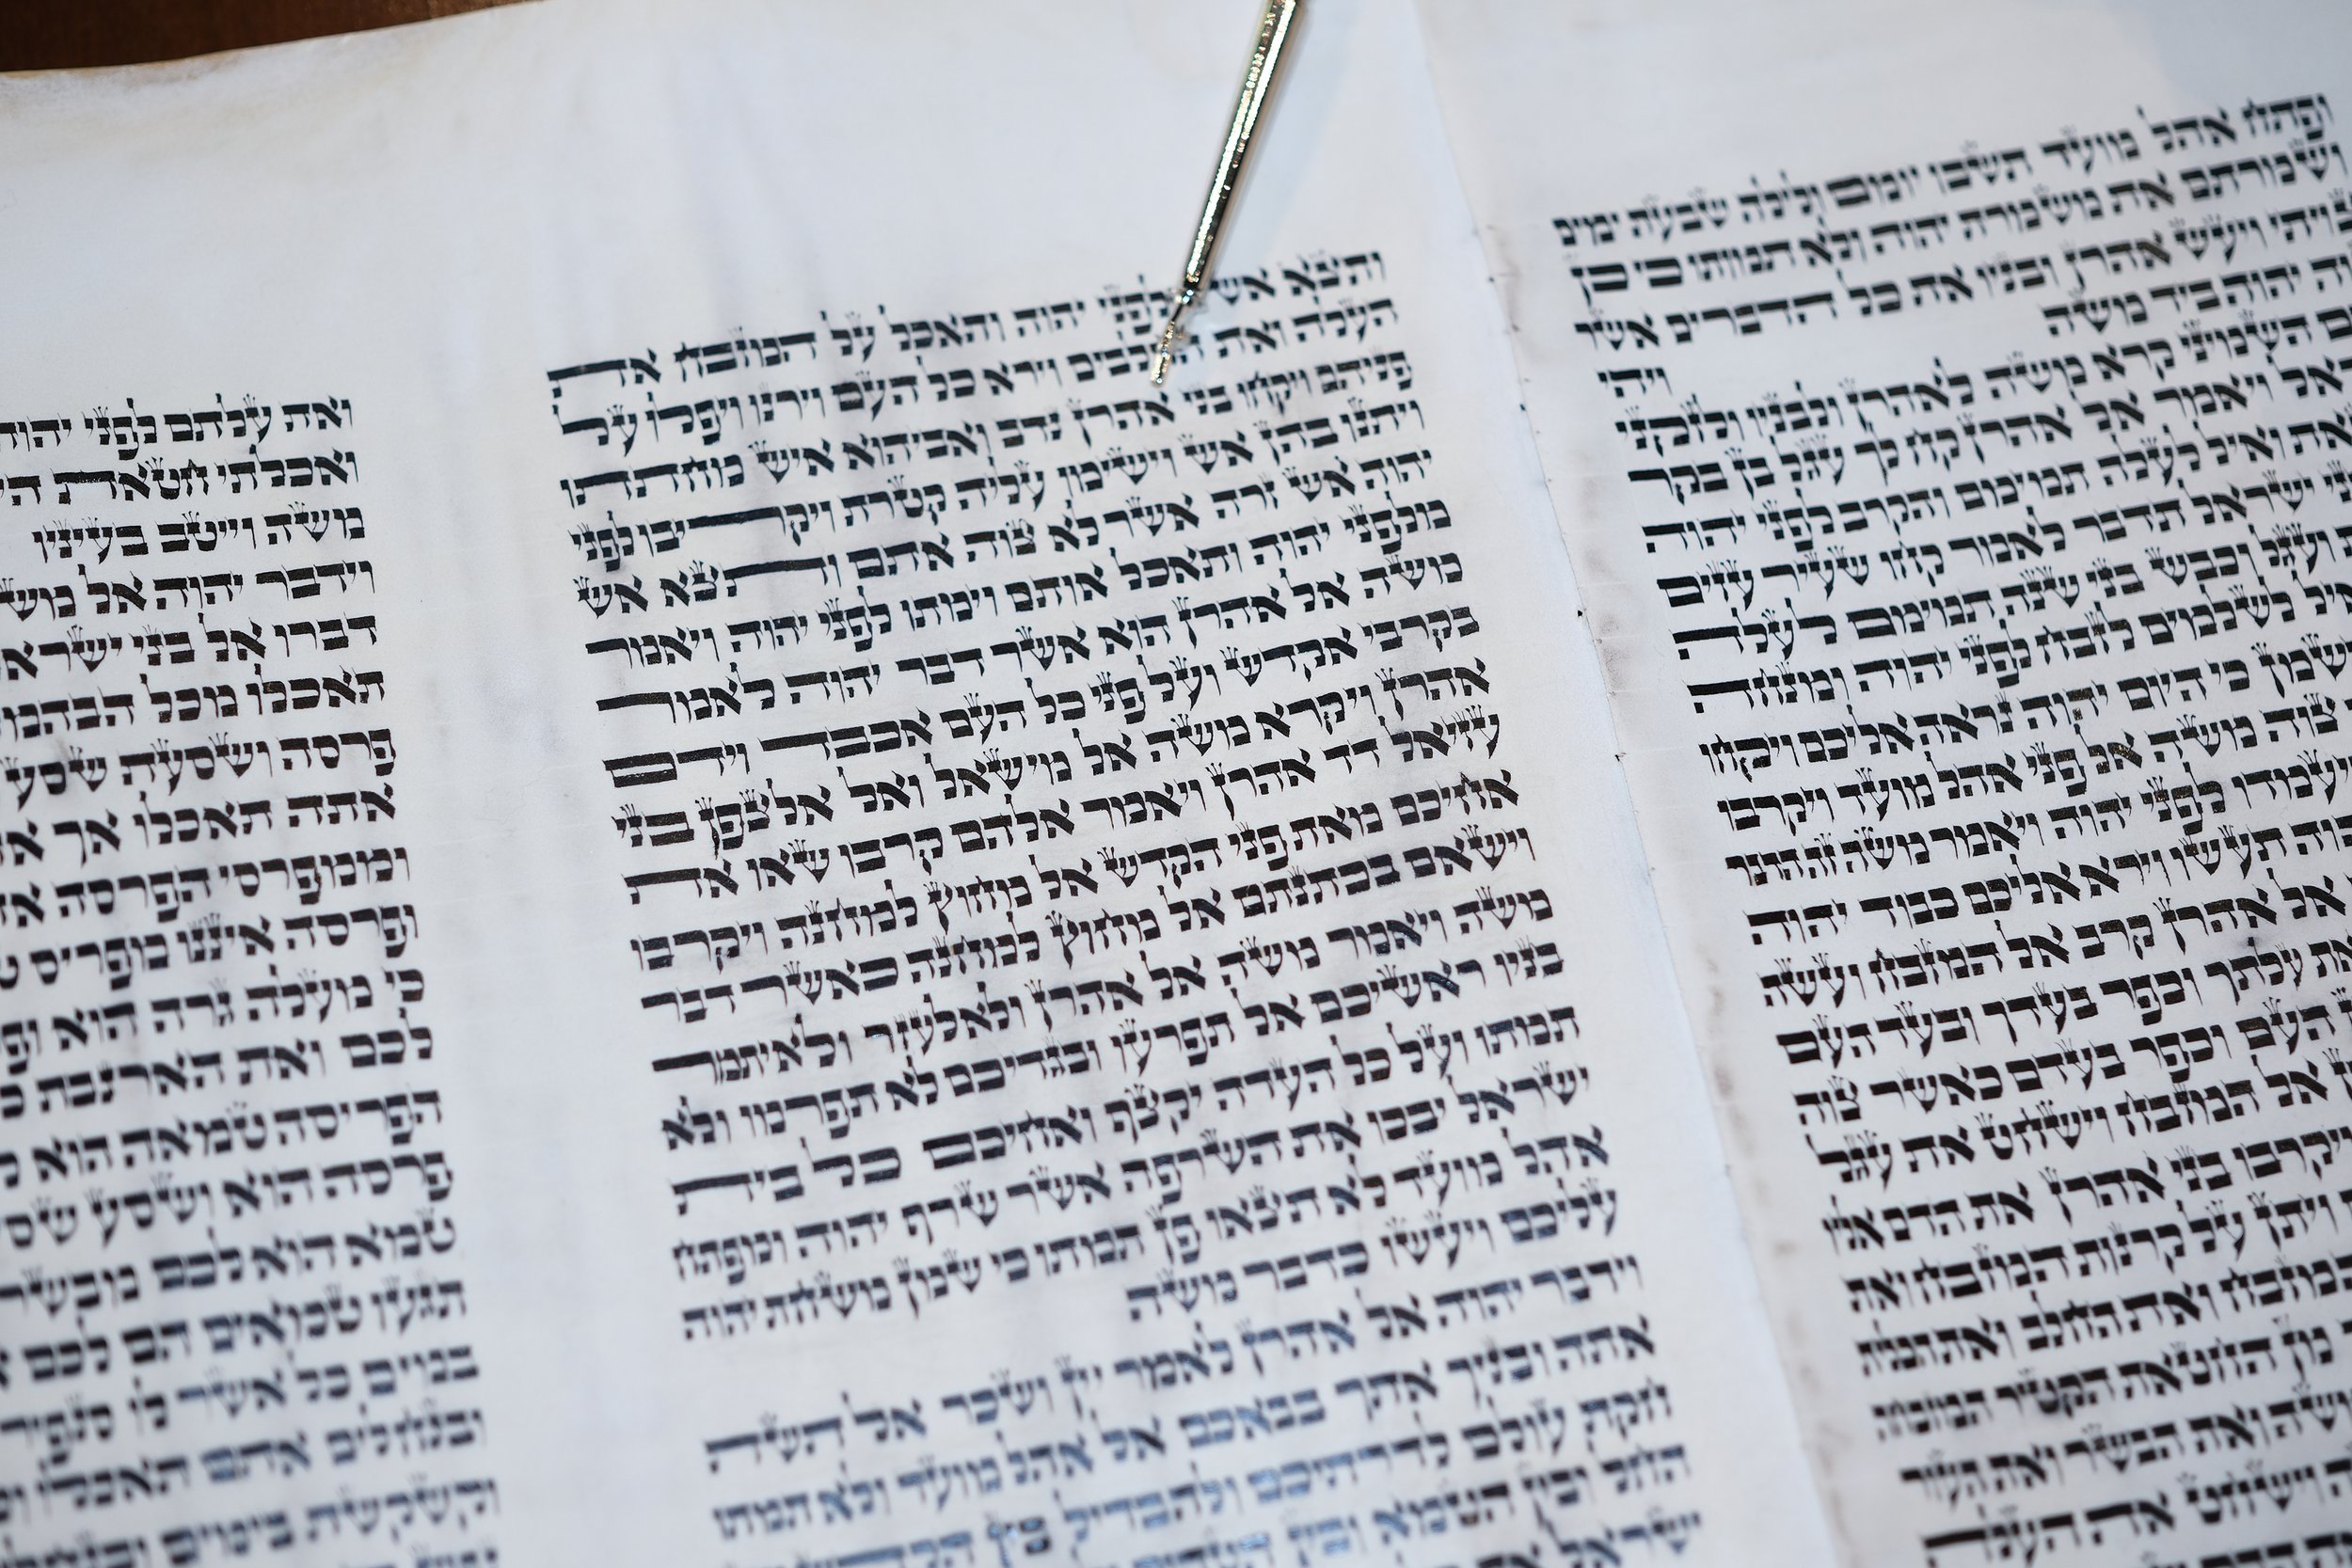 ופתח אהל מועד תשבו יומם ולילה שבעת ימים
ושמרתם את משמרת יהוה ולא תמותו כי כן
ויעש אהרן ובניו את כל הדברים אשר
יהוה ביד משה ויהי
השמיני קרא משה לאהרן ולבניו ולזקני
ויאמר אל אהרן קח לך עגל בן בקר
ואיל לעלה תמימם והקרב לפני יהוה
ישראל תדבר לאמר קחו שעיר עזים
ועגל וכבש בני שנה תמימם לעלה
לשלמים לזבח לפני יהוה ומנחה
כי היום יהוה נראה אליכם ויקחו
צוה משה אל פני אהל מועד ויקרבו
לפני יהוה ויאמר משה זה הדבר
תעשו וירא אליכם כבוד יהוה
אל אהרן קרב אל המזבח ועשה
עלתך וכפר בעדך ובעד העם
העם וכפר בעדם כאשר צוה
אל המזבח וישחט את עגל
ויקרבו בני אהרן את הדם אליו
ויתן על קרנות המזבח ואת
ואת החלב ואת הכלית
מן החטאת הקטיר המזבחה
ואת הבשר ואת העור
וישחט את העלה
ותצא אש לפני יהוה ותאכל על המזבח את
העלה ואת החלבים וירא כל העם וירנו ויפלו על
פניהם ויקחו בני אהרן נדב ואביהוא איש מחתתו
ויתנו בהן אש וישימו עליה קטרת ויקריבו לפני
יהוה אש זרה אשר לא צוה אתם ותצא אש
מלפני יהוה ותאכל אותם וימתו לפני יהוה ויאמר
משה אל אהרן הוא אשר דבר יהוה לאמר
בקרבי אקדש ועל פני כל העם אכבד וידם
אהרן ויקרא משה אל מישאל ואל אלצפן בני
עזיאל דד אהרן ויאמר אלהם קרבו שאו את
אחיכם מאת פני הקדש אל מחוץ למחנה ויקרבו
וישאם בכתנתם אל מחוץ למחנה כאשר דבר
משה ויאמר משה אל אהרן ולאלעזר ולאיתמר
בניו ראשיכם אל תפרעו ובגדיכם לא תפרמו ולא
תמתו ועל כל העדה יקצף ואחיכם כל בית
ישראל יבכו את השרפה אשר שרף יהוה ומפתח
אהל מועד לא תצאו פן תמתו כי שמן משחת יהוה
עליכם ויעשו כדבר משה
וידבר יהוה אל אהרן לאמר יין ושכר אל תשת
אתה ובניך אתך בבאכם אל אהל מועד ולא תמתו
חקת עולם לדרתיכם ולהבדיל בין הקדש
החל ובין הטמא ובין
ואת עלתם לפני יהוה
ואכלתי חטאת
משה וייטב בעיניו
וידבר יהוה אל משה
דברו אל בני ישראל
תאכלו מכל הבהמה
פרסה ושסעת שסע
אתה תאכלו אך
וממפרסי הפרסה
ופרסה איננו מפריס
כי מעלה גרה הוא
לכם ואת הארנבת
הפריסה טמאה הוא
פרסה הוא ושסע שסע
טמא הוא לכם מבשרם
תגעו טמאים הם לכם
במים כל אשר לו סנפיר
ובנחלים אתם תאכלו
וקשקשת בימים